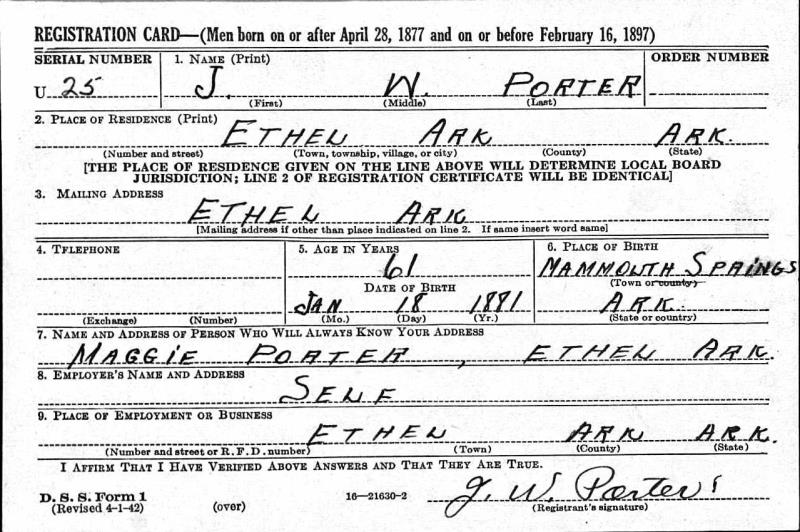 REGISTRATION CARD—(Men born on or after April 28, 1877 and on or before February 16, 1897)
SERIAL NUMBER 1. NAME (Print) ORDER NUMBER
U 25 J. W. PORTER
(First) (Middle) (Last)
2. PLACE OF RESIDENCE (Print)
ETHEL ARK ARK.
(Number and street) (Town, township, village, or city) (County) (State)
[THE PLACE OF RESIDENCE GIVEN ON THE LINE ABOVE WILL DETERMINE LOCAL BOARD
JURISDICTION; LINE 2 OF REGISTRATION CERTIFICATE WILL BE IDENTICAL]
3. MAILING ADDRESS
ETHEL ARK
[Mailing address if other than place indicated on line 2. If same insert word same]
4. TELEPHONE 5. AGE IN YEARS 6. PLACE OF BIRTH
61 MAMMOUTH SPRINGS
DATE OF BIRTH (Town or county)
JAN 18 1881 ARK.
(Exchange) (Number) (Mo.) (Day) (Yr.) (State or country)
7. NAME AND ADDRESS OF PERSON WHO WILL ALWAYS KNOW YOUR ADDRESS
MAGGIE PORTER, ETHEL ARK.
8. EMPLOYER'S NAME AND ADDRESS
SELF
9. PLACE OF EMPLOYMENT OR BUSINESS
ETHEL ARK ARK.
(Number and street or R. F. D. number) (Town) (County) (State)
I AFFIRM THAT I HAVE VERIFIED ABOVE ANSWERS AND THAT THEY ARE TRUE.
D. S. S. Form 1
(Revised 4-1-42) (over) 16—21630-2 J. W. Porter
(Registrant's signature)